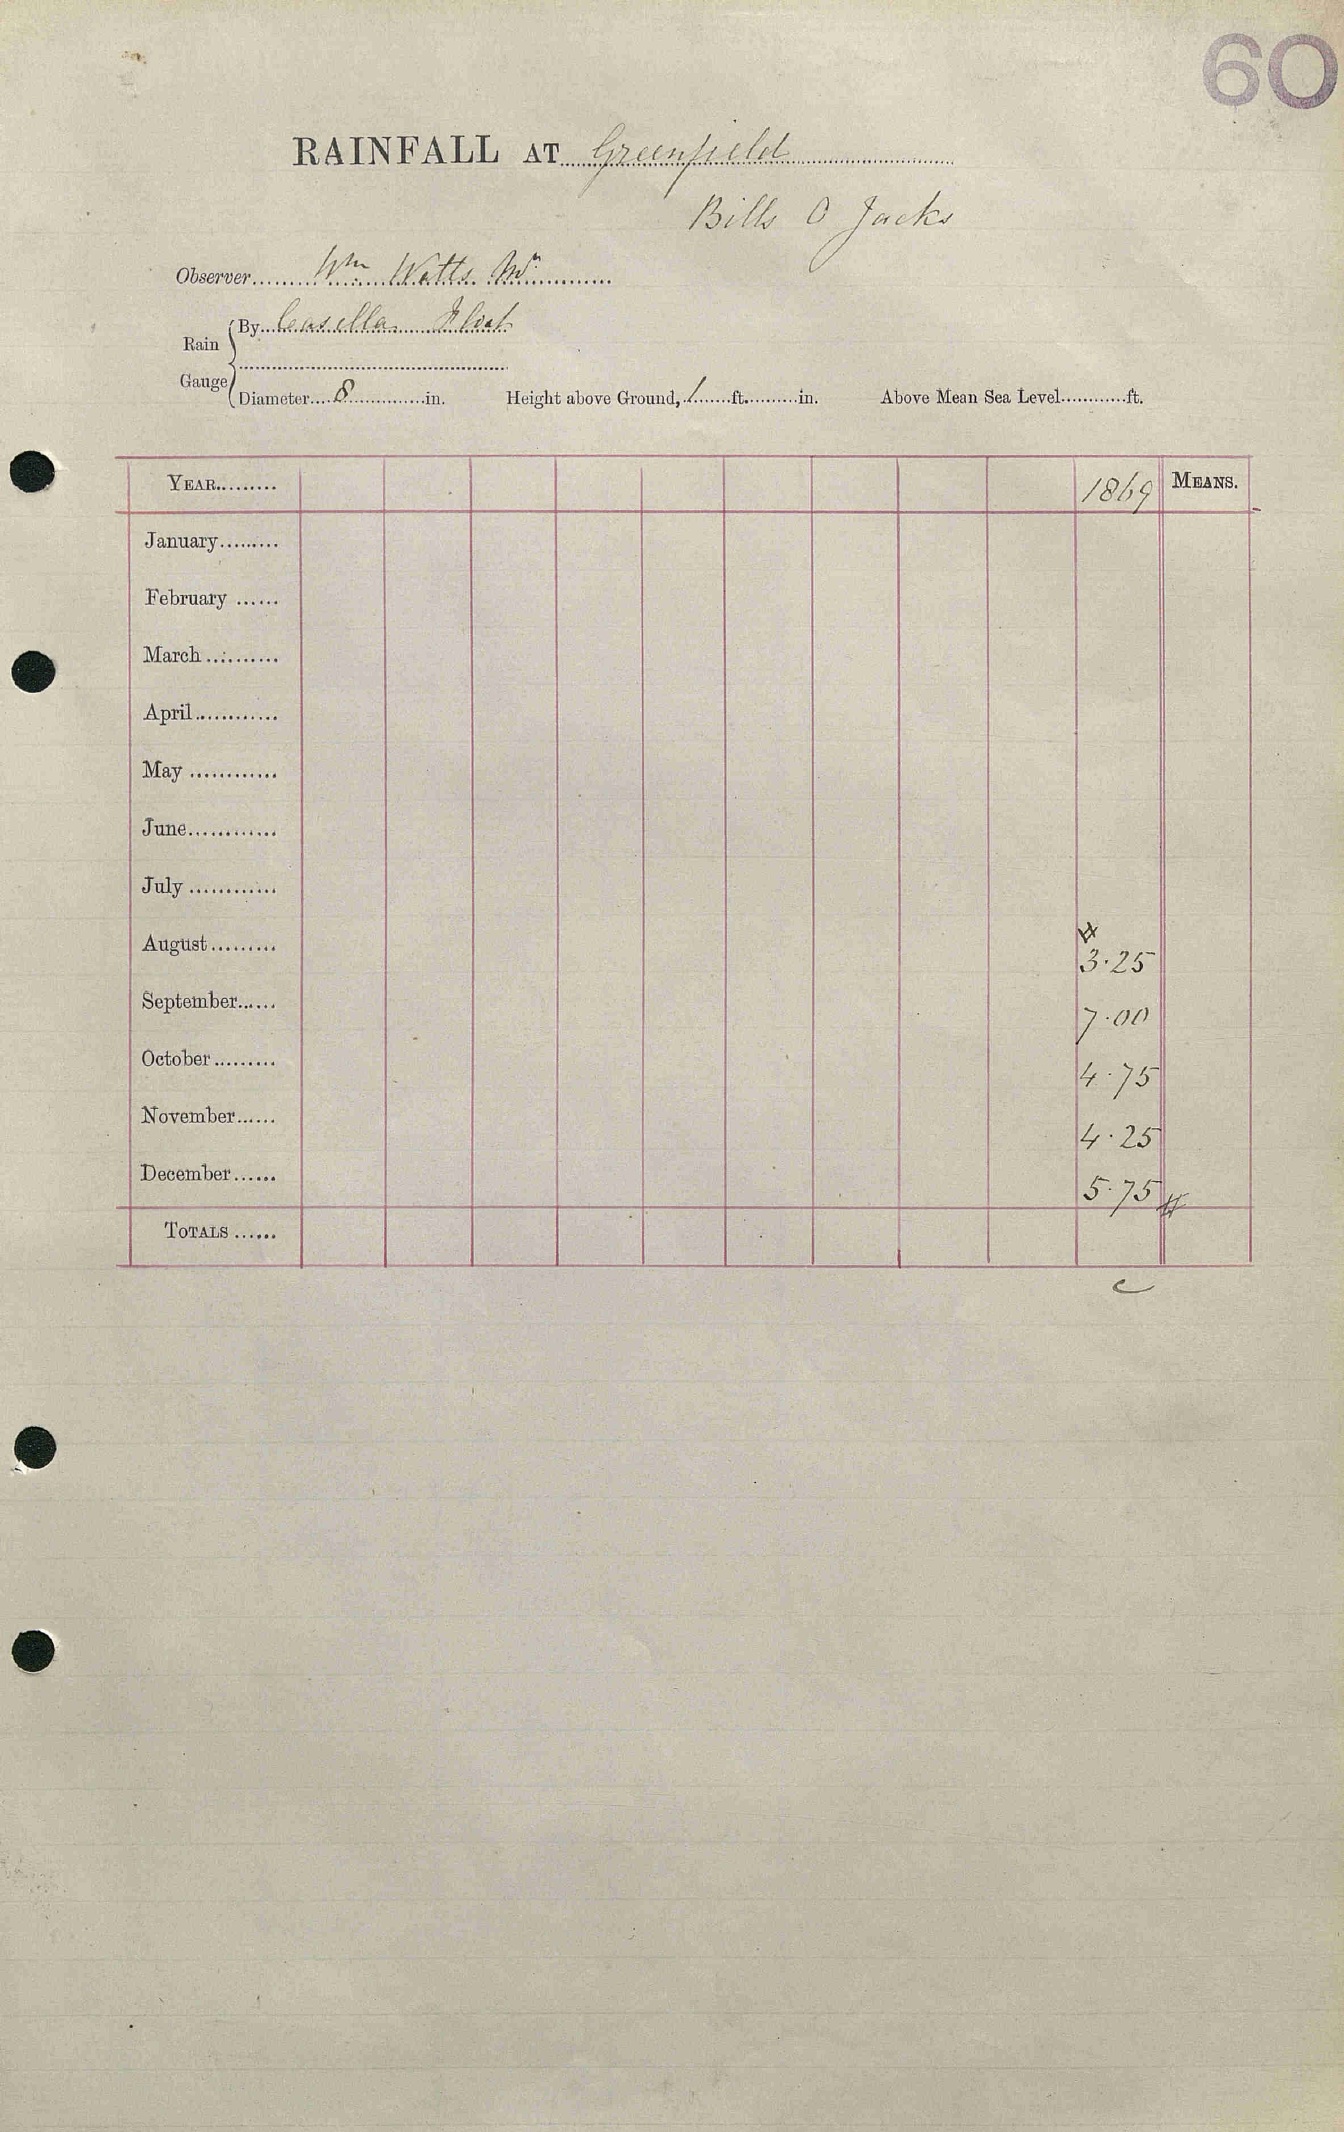 60
RAINFALL AT Greenfield
Bills O Jacks
Observer Wm Watts
By Casella Float
Rain
Gauge
Diameter 8 in. Height above Ground, 1 ft. in. Above Mean Sea Level ft.
YEAR 1869 MEANS.
January
February
March
April
May
June
July
August 3.25
September 7.00
October 4.75
November 4.25
December 5.75
TOTALS
c